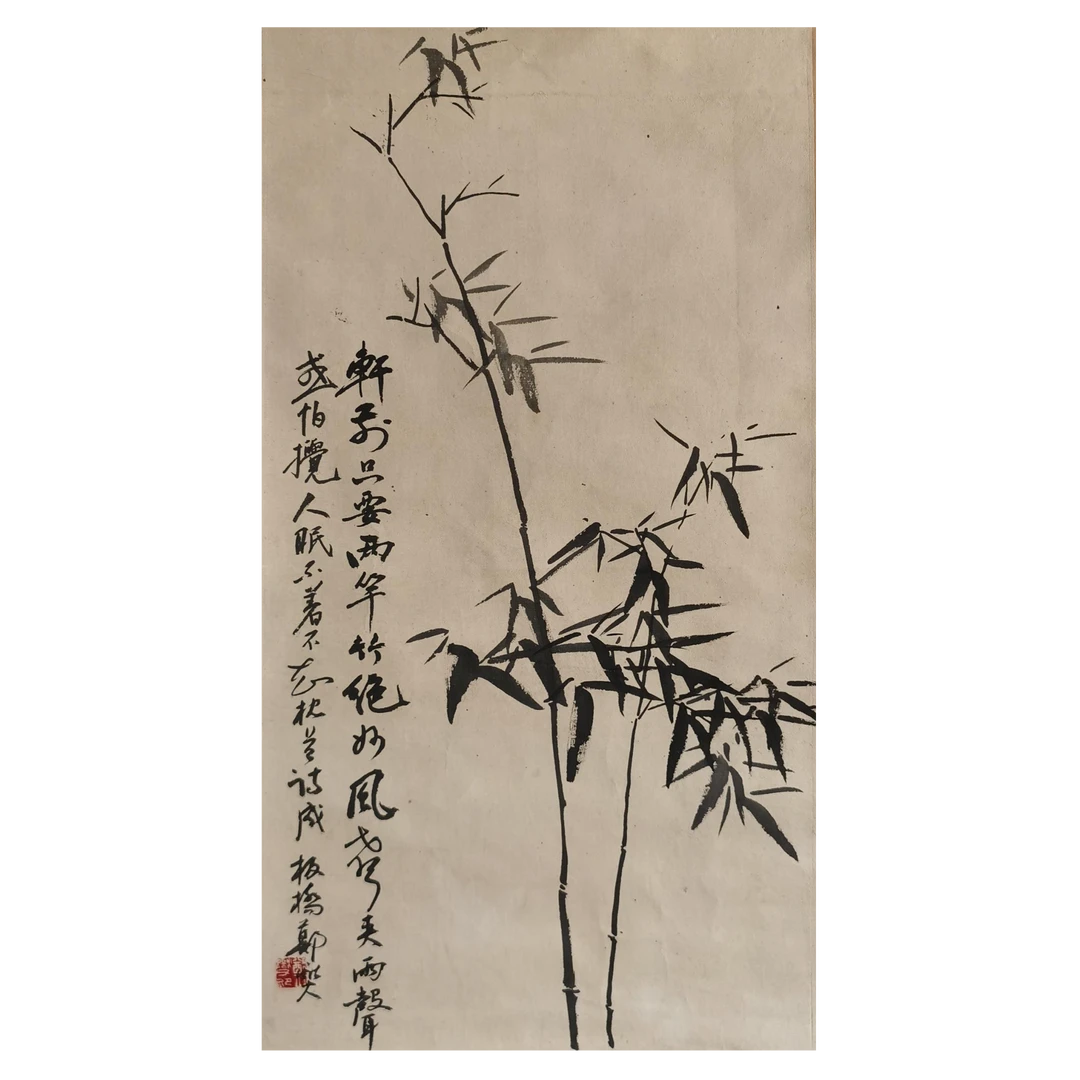 軒前只要兩竿竹絕妙風聲夾雨聲
或怕攪人眠不著不知枕上詩成 板橋鄭燮